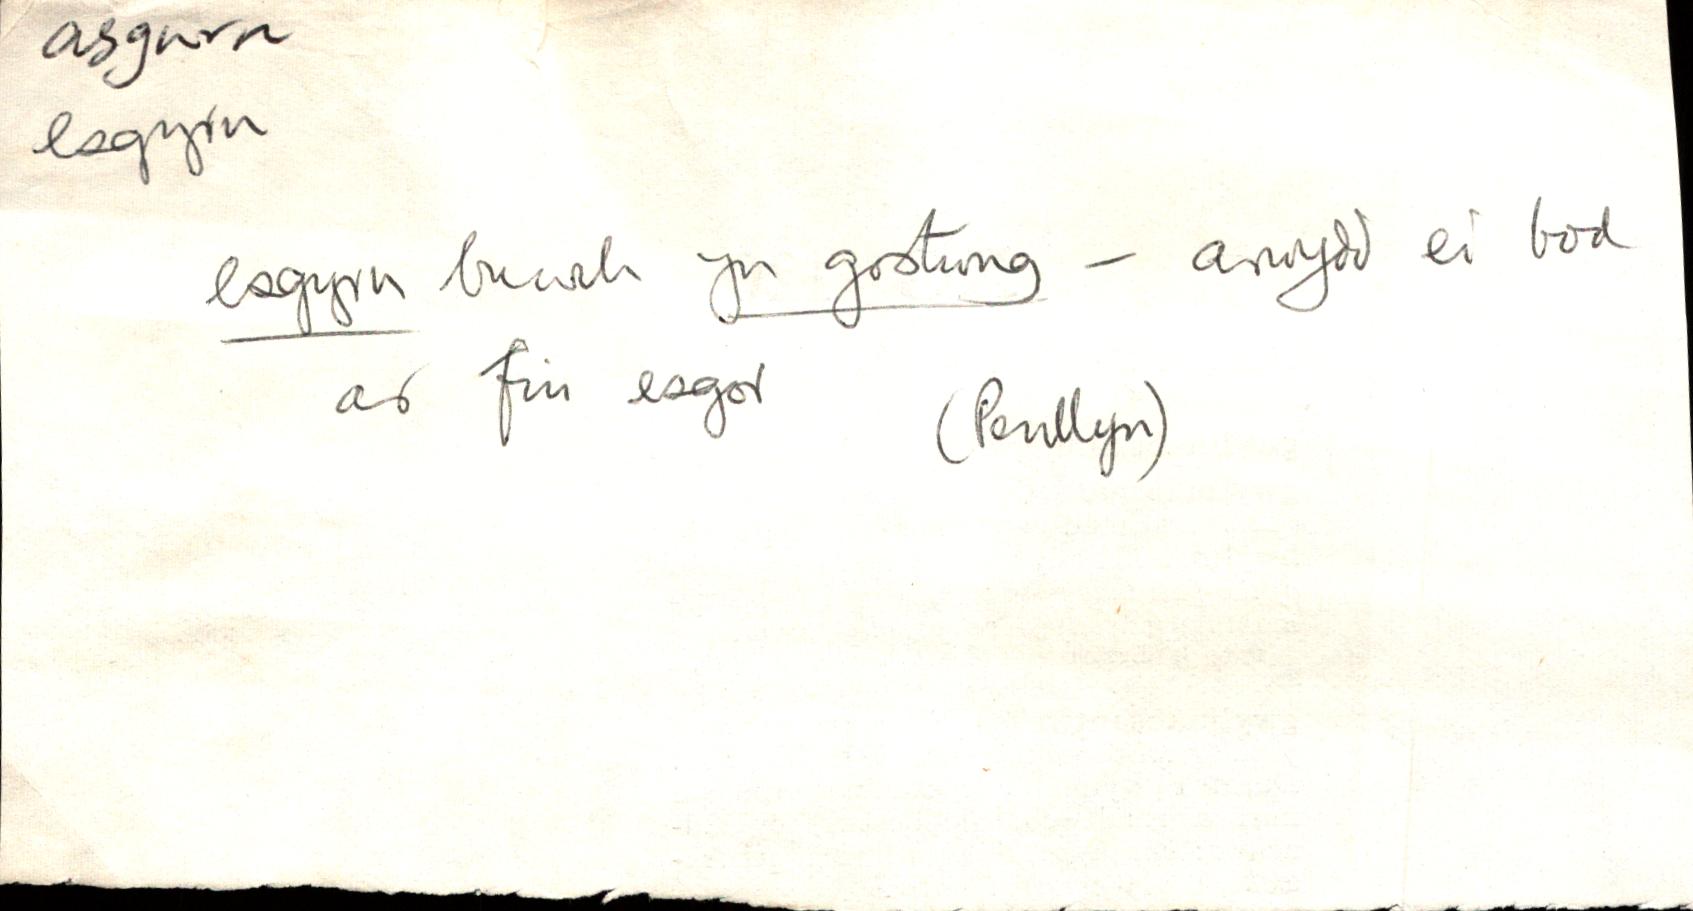 asgwrn
esgyrn
esgyrn buwch yn gostwng – arwydd ei bod
ar fin esgor
(Penllyn)